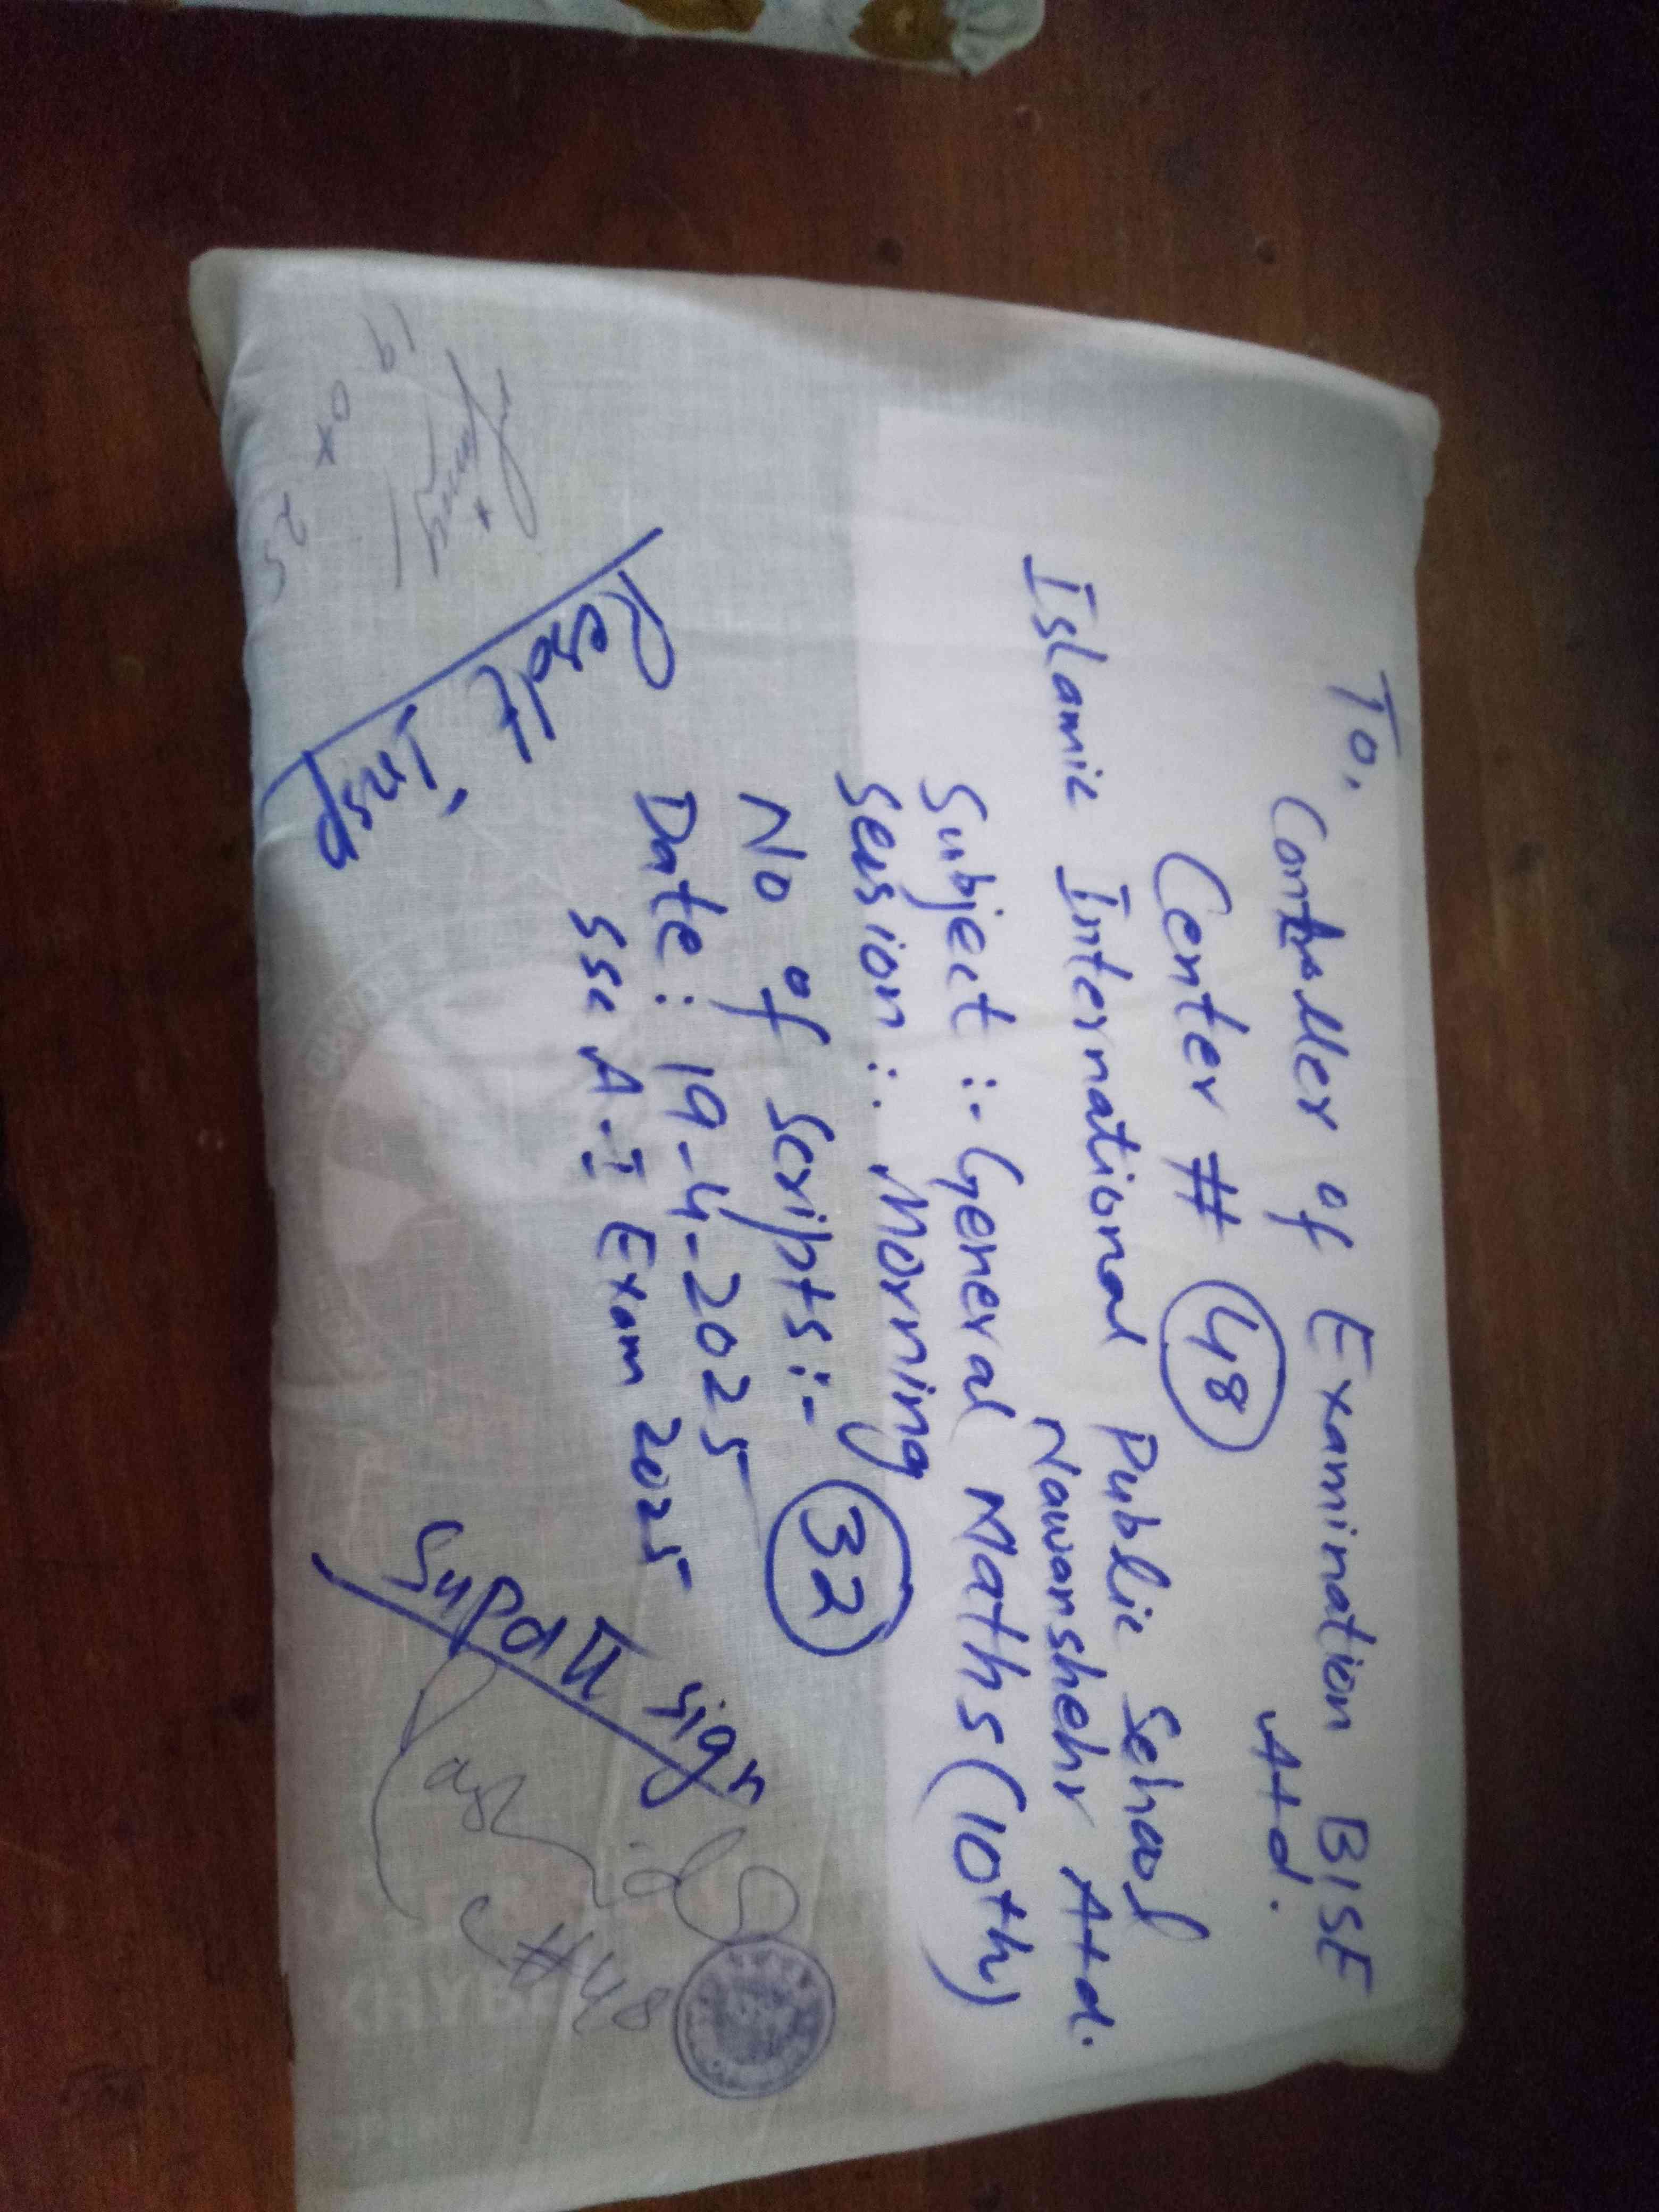 To,
Controller of Examination BISE
Atd.
Center # 48
Islamic International Public School
Nawanshehr Atd.
Subject :- General Maths (10th)
Session :. Morning
No of Scripts :- 32
Date : 19-4-2025
SSC A-I Exam 2025
Insp
Supdnt
Sign
#48
19
25
KHYB